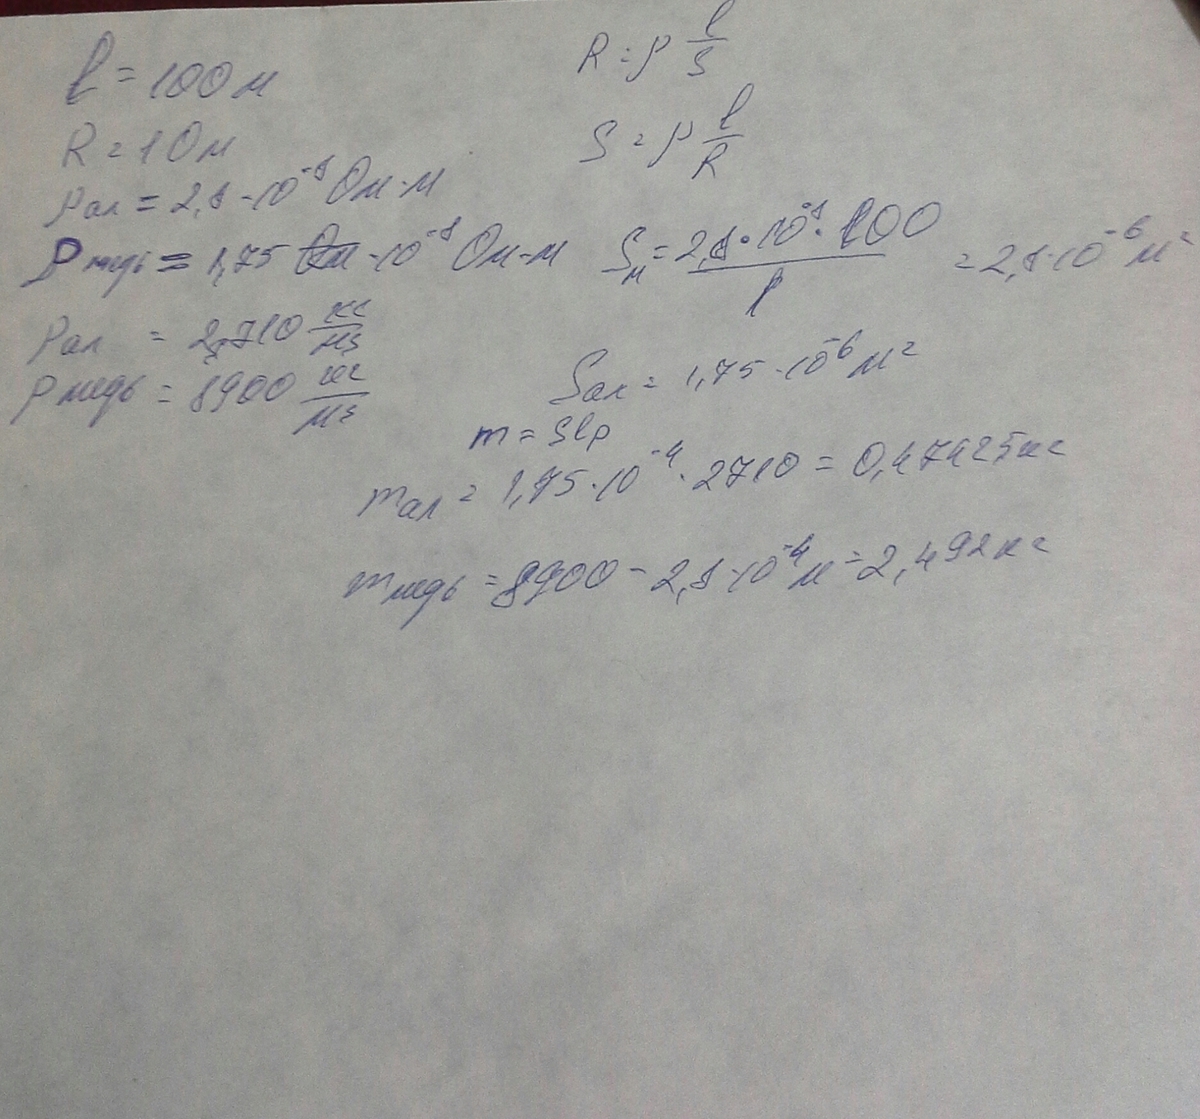 l = 100 м
R = 1 Ом
ρал = 2,8 · 10⁻⁸ Ом·м
ρмедь = 1,75 · 10⁻⁸ Ом·м
ρал = 2710 кг/м3
ρмедь = 8900 кг/м3
R = ρ l/S
S = ρ l/R
Sм = 2,8 · 10⁻⁸ · 100 / 1 = 2,8 · 10⁻⁶ м²
Sал = 1,75 · 10⁻⁶ м²
m = Slρ
mал = 1,75 · 10⁻⁴ · 2710 = 0,47425 кг
mмедь = 8900 - 2,8 · 10⁻⁴ м = 2,492 кг